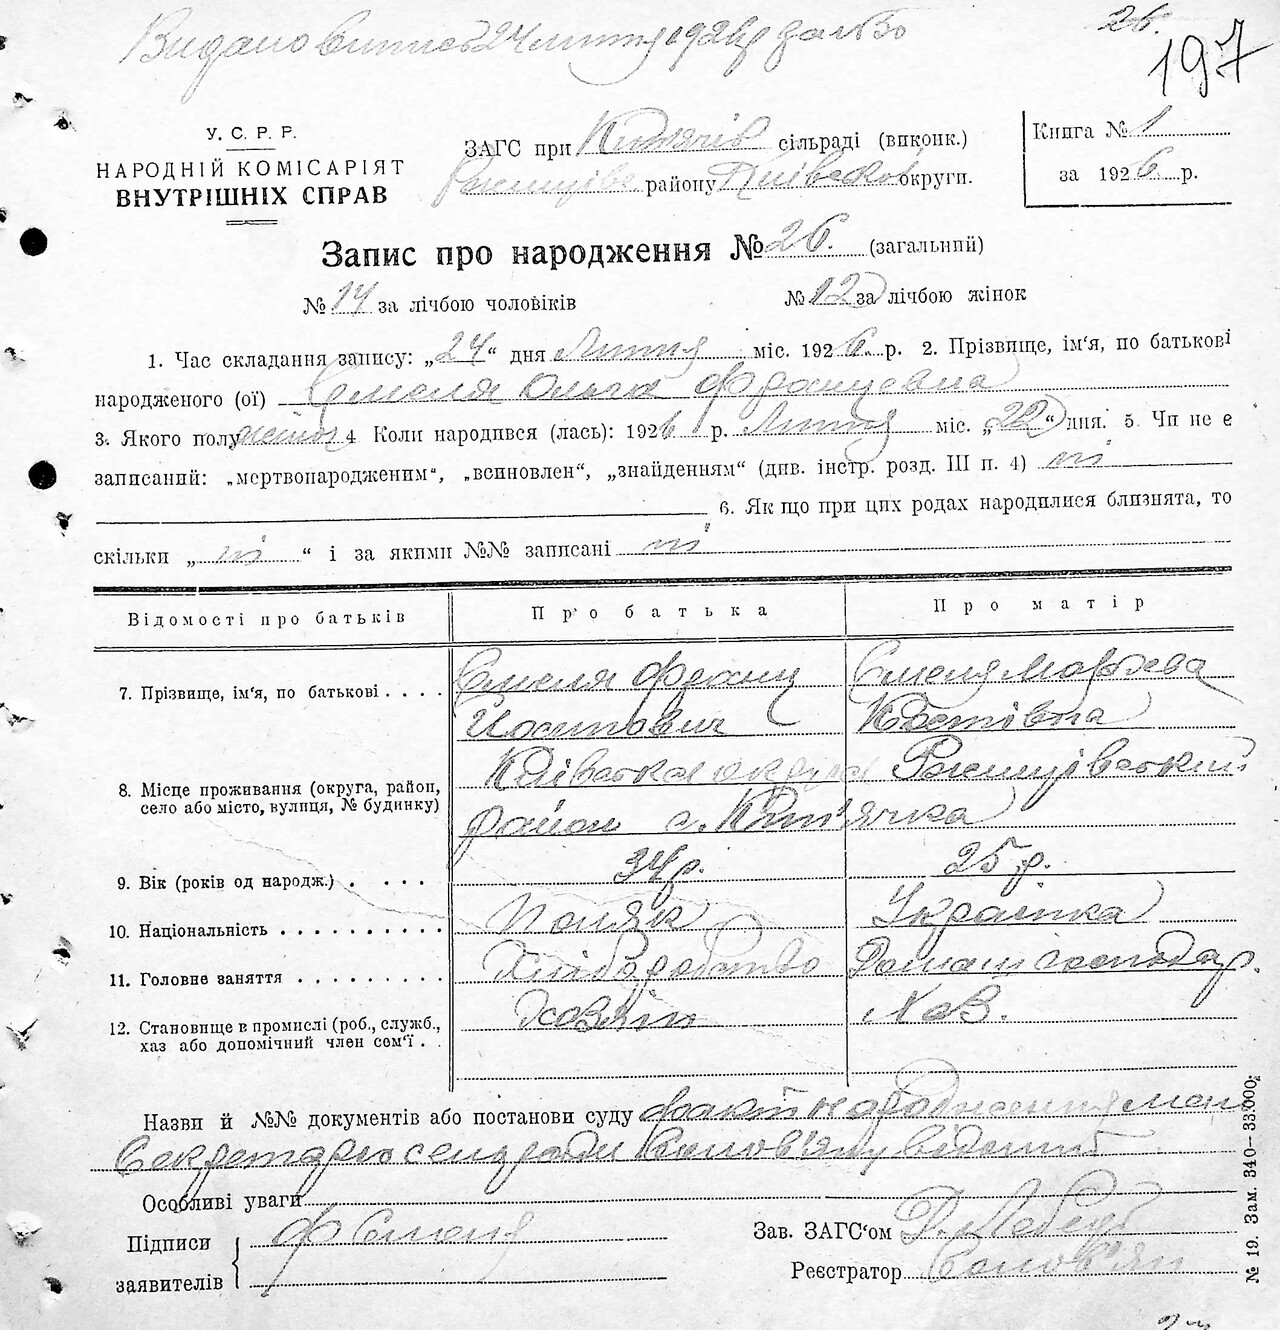 Видано випись 24 лютня 192 р за №50
26.
197
У. С. Р. Р.
НАРОДНІЙ КОМІСАРІЯТ
ВНУТРІШНІХ СПРАВ
ЗАГС при сільраді (виконк.)
району Київскої округи.
Книга № 1
за 1926 р.
Запис про народження № 26. (загальний)
№ 14 за лічбою чоловіків
№ 12 за лічбою жінок
1. Час складання запису: „24“ дня Лютня міс. 1926 р. 2. Прізвище, ім'я, по батькові
народженого (ої) Смеля Ольга Францевна
3. Якого полу жіноч 4 Коли народився (лась): 1926 р. Лютня міс. „22“ дня. 5. Чи не є
записаний: „мертвонародженим“, „всиновлен“, „знайденням“ (див. інстр. розд. III п. 4) ні
6. Як що при цих родах народилися близнята, то
скільки „ ні “ і за якими №№ записані ні
Відомості про батьків
Про батька
Про матір
7. Прізвище, ім'я, по батькові . . . .
Смеля Франц
Йосипович
Смеля
Костівна
8. Місце проживання (округа, район,
село або місто, вулиця, № будинку)
Київська округа
район с.
9. Вік (років од народж.) . . . .
34 р.
25 р.
10. Національність . . . . . . . . . .
Поляк
Українка
11. Головне заняття . . . . . . . . .
Хліборобство
Домаш господар.
12. Становище в промислі (роб., служб.,
хаз або допомічний член сем'ї . .
Хазяїн
Назви й №№ документів або постанови суду факт народження
Секретарю сельради Солов'яну відомий
Особливі уваги
Підписи
заявителів
Ф Смеля
Зав. ЗАГС'ом Д. Лебедь
Реєстратор Солов'ян
№ 19. Зам. 340—33.000.